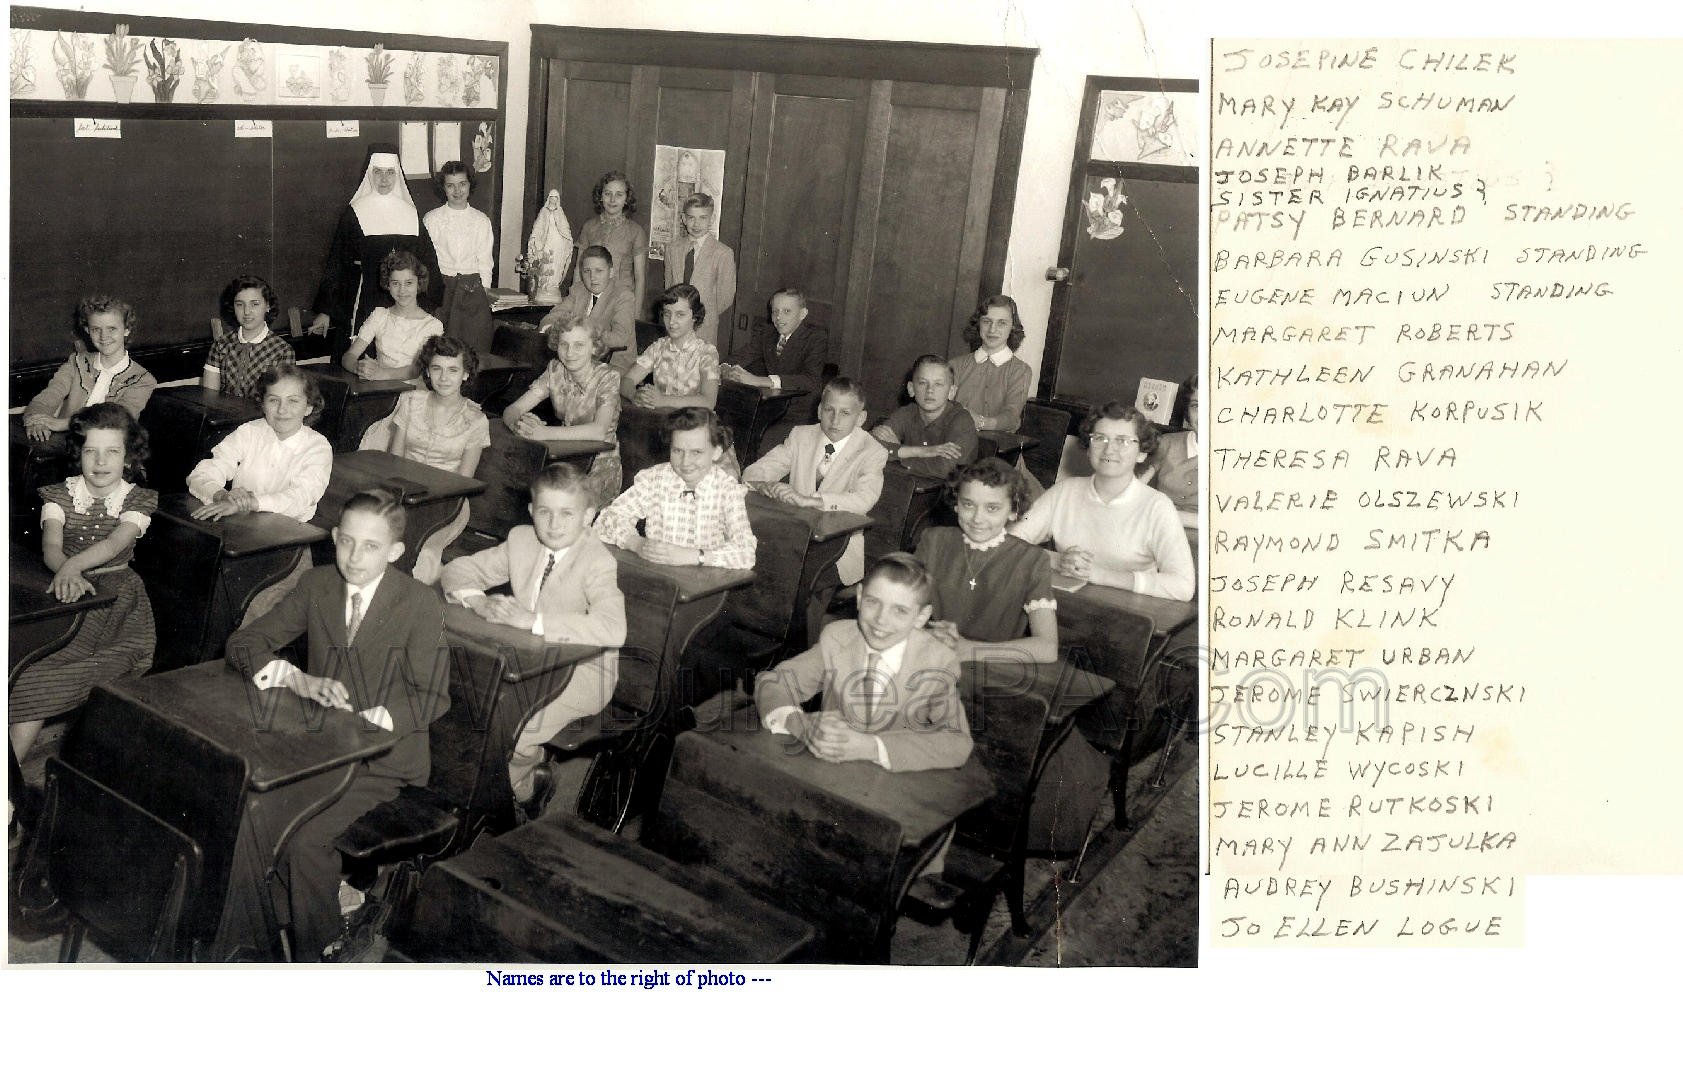 JOSEPINE CHILEK
MARY KAY SCHUMAN
ANNETTE RAVA
JOSEPH BARLIK
SISTER IGNATIUS ?
PATSY BERNARD STANDING
BARBARA GUSINSKI STANDING
EUGENE MACIUN STANDING
MARGARET ROBERTS
KATHLEEN GRANAHAN
CHARLOTTE KORPUSIK
THERESA RAVA
VALERIE OLSZEWSKI
RAYMOND SMITKA
JOSEPH RESAVY
RONALD KLINK
MARGARET URBAN
JEROME SWIERCZNSKI
STANLEY KAPISH
LUCILLE WYCOSKI
JEROME RUTKOSKI
MARY ANN ZAJULKA
AUDREY BUSHINSKI
JO ELLEN LOGUE
WWW.DuryeaPA.Com
Names are to the right of photo ---